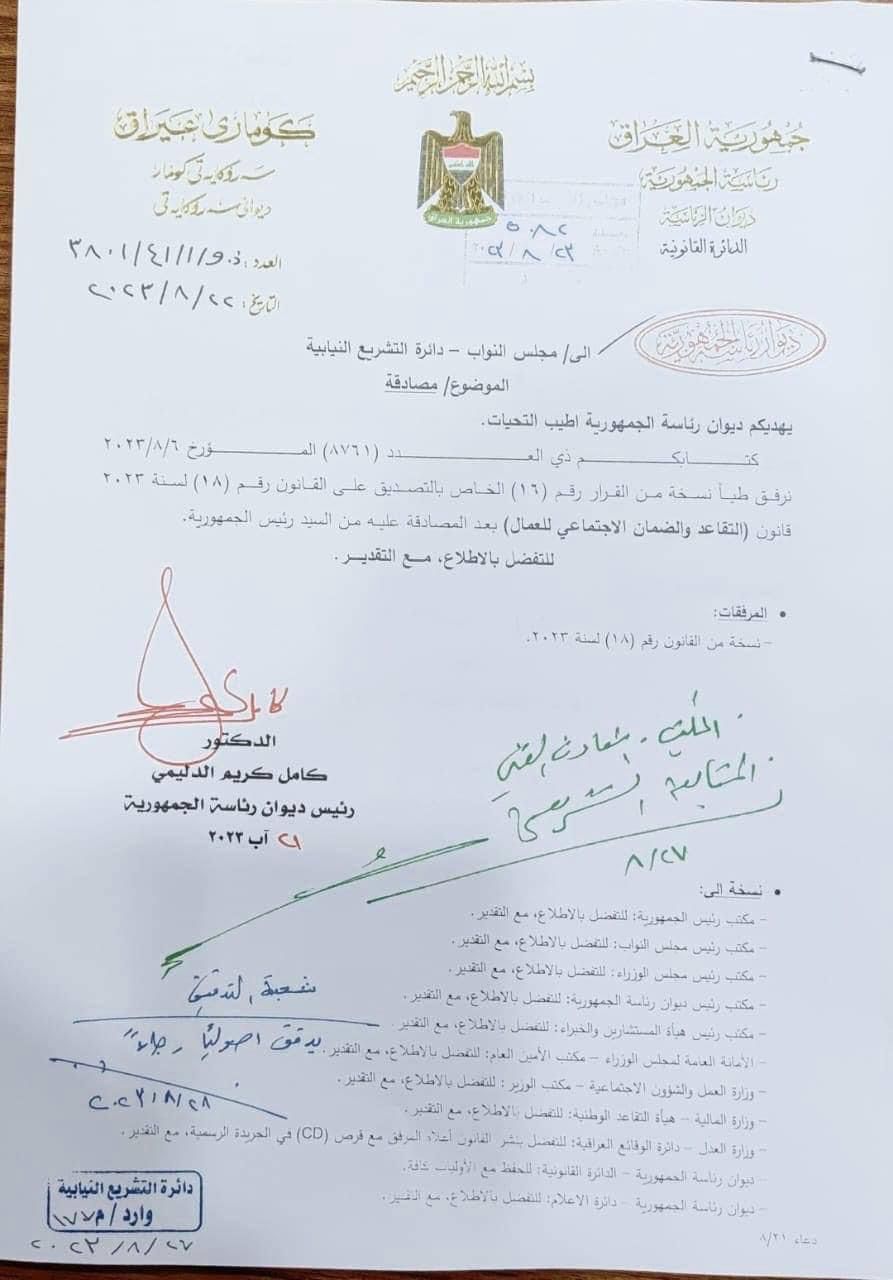 بسم الله الرحمن الرحيم
جمهورية العراق
رئاسة الجمهورية
ديوان الرئاسة
الدائرة القانونية
كۆماری عێراق
سەرۆکایەتی کۆمار
دیوانی سەرۆکایەتی
جمهورية العراق
٥٠٨٢
٢٠٢٣/٨/٢٣
العدد: ذ.و/٣٨٠١/٤١/١
التاريخ: ٢٠٢٣/٨/٢٢
ديوان رئاسة الجمهورية
الى/ مجلس النواب – دائرة التشريع النيابية
الموضوع/ مصادقة
يهديكم ديوان رئاسة الجمهورية اطيب التحيات.
كتابكم ذي العدد (٨٧٦١) المؤرخ ٢٠٢٣/٨/٦
نرفق طياً نسخة من القرار رقم (١٦) الخاص بالتصديق على القانون رقم (١٨) لسنة ٢٠٢٣
قانون (التقاعد والضمان الاجتماعي للعمال) بعد المصادقة عليه من السيد رئيس الجمهورية.
للتفضل بالاطلاع، مع التقدير.
• المرفقات:
– نسخة من القانون رقم (١٨) لسنة ٢٠٢٣.
الدكتور
كامل كريم الدليمي
رئيس ديوان رئاسة الجمهورية
٢١ آب ٢٠٢٣
٨/٢٧
• نسخة الى:
– مكتب رئيس الجمهورية: للتفضل بالاطلاع، مع التقدير.
– مكتب رئيس مجلس النواب: للتفضل بالاطلاع، مع التقدير.
– مكتب رئيس مجلس الوزراء: للتفضل بالاطلاع، مع التقدير.
– مكتب رئيس ديوان رئاسة الجمهورية: للتفضل بالاطلاع، مع التقدير.
– مكتب رئيس هيأة المستشارين والخبراء: للتفضل بالاطلاع، مع التقدير.
– الأمانة العامة لمجلس الوزراء – مكتب الأمين العام: للتفضل بالاطلاع، مع التقدير.
– وزارة العمل والشؤون الاجتماعية – مكتب الوزير: للتفضل بالاطلاع، مع التقدير.
– وزارة المالية – هيأة التقاعد الوطنية: للتفضل بالاطلاع، مع التقدير.
– وزارة العدل – دائرة الوقائع العراقية: للتفضل بنشر القانون أعلاه المرفق مع قرص (CD) في الجريدة الرسمية، مع التقدير.
– ديوان رئاسة الجمهورية – الدائرة القانونية: للحفظ مع الأوليات كافة.
– ديوان رئاسة الجمهورية – دائرة الاعلام: للتفضل بالاطلاع، مع التقدير.
شعبة التدقيق
يدقق اصوليا رجاءً
٢٠٢٣/٨/٢٨
دائرة التشريع النيابية
وارد/م
٢٠٢٣/٨/٢٧
دعاء ٨/٢١